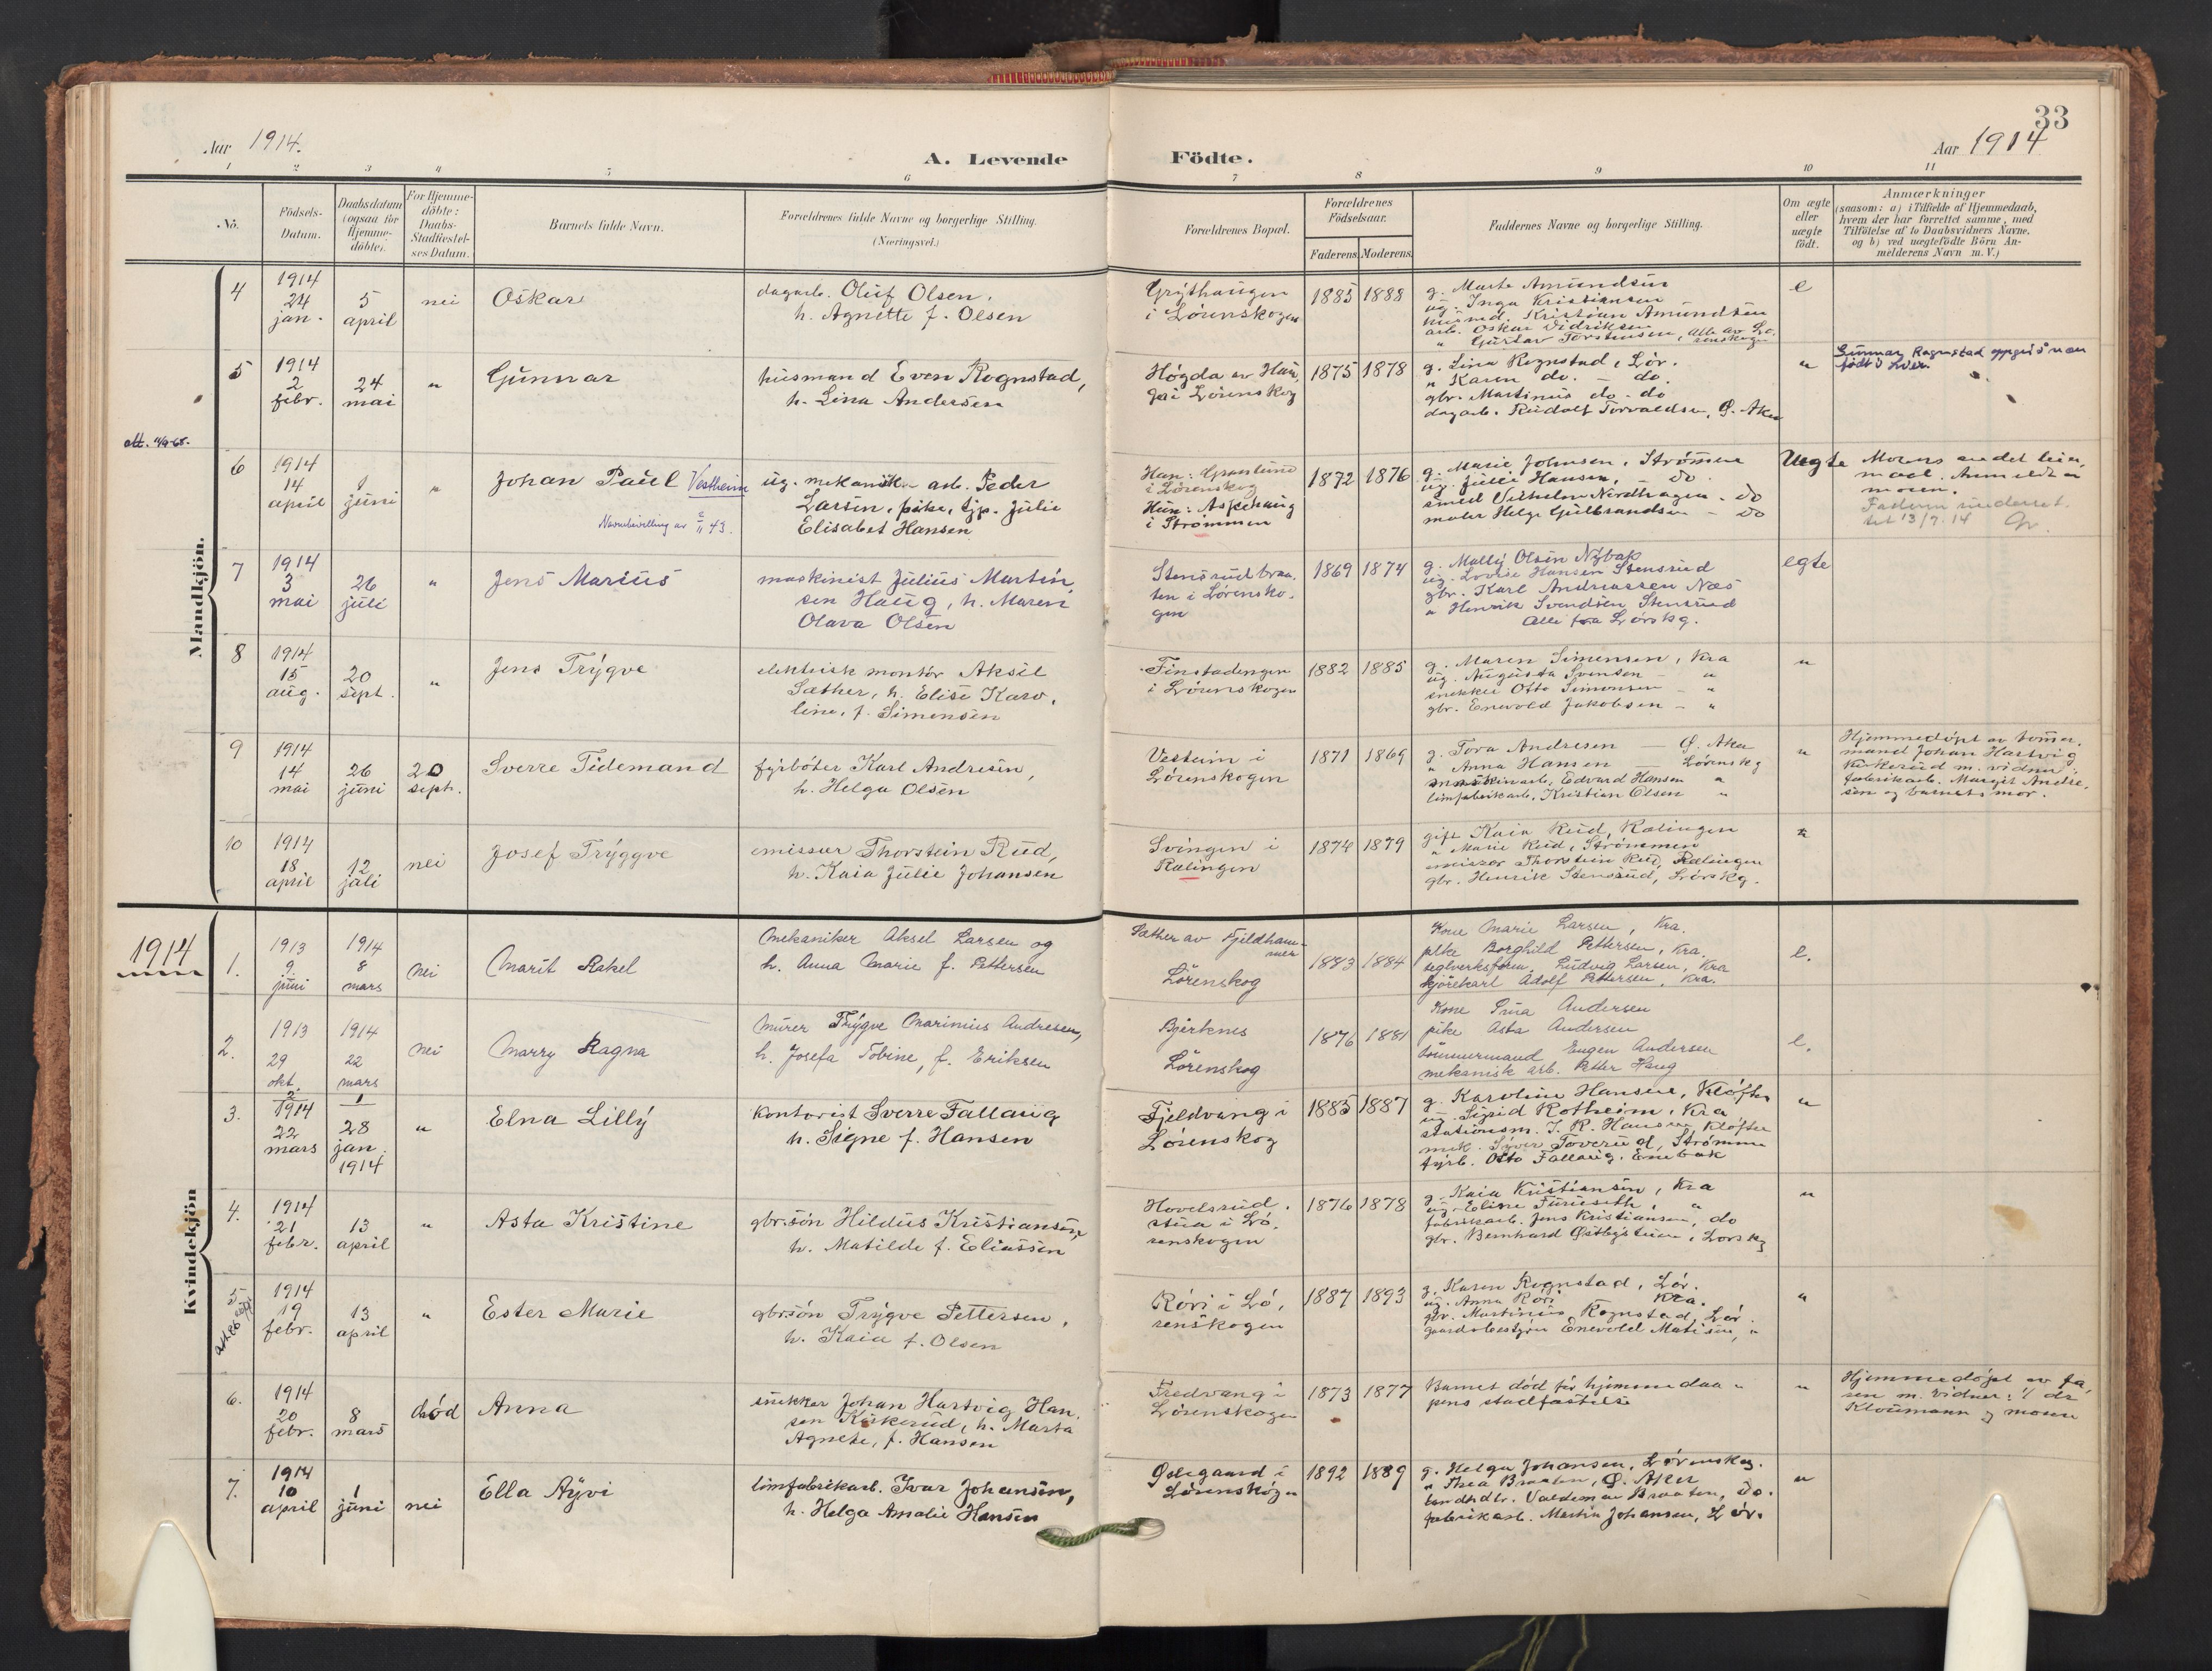 33
Aar 1914.
A. Levende
Födte.
Aar 1914
1 2 3 4 5 6 7 8 9 10 11
No.
Födsels-
Datum.
Daabsdatum
(ogsaa for
Hjemme-
döbte).
For Hjemme-
döbte:
Daabs-
Stadfæstel-
ses Datum.
Barnets fulde Navn.
Forældrenes fulde Navne og borgerlige Stilling.
(Næringsvei.)
Forældrenes Bopæl.
Forældrenes
Födselsaar.
Faderens
Moderens
Faddernes Navne og borgerlige Stilling.
Om ægte
eller
uægte
födt.
Anmærkninger
(saasom: a) i Tilfælde af Hjemmedaab,
hvem der har forrettet samme, med
Tilföielse af to Daabsvidners Navne,
og b) ved uægtefödte Börn An-
melderens Navn m. V.)
Mandkjön.
4
1914
24
jan.
5
april
nei
Oskar
dagarb. Oluf Olsen,
h. Agnette f. Olsen
Grythaugen
i Lørenskogen
1885
1888
g. Marte Amundsen
ug. Inga Kristiansen
husmd. Kristian Amundsen
arb. Oskar Didriksen
" Gustav Torstensen, alle av Lø-
renskogen
e
5
1914
2
febr.
24
mai
"
Gunnar
husmand Even Rognstad,
h. Lina Andersen
Høgda av Hau
ga i Lørenskog
1875
1878
g. Lina Rognstad, Lør.
" Karen do. - do.
gbr. Martinus do - do
dagarb. Rudolf Torvaldsen, Ø. Aker
"
Gunnar Rognstad
6
1914
14
april
1
juni
"
Johan Paul Vestheim
Navnebevilling av
ug. mekanisk arb. Peder
Larsen, pike, tjp. Julie
Elisabet Hansen
Han: Granlund
i Lørenskog
Hun: Aspehaug
i Strømmen
1872
1876
g. Marie Johnsen, Strømmen
ug. Julie Hansen, - do
smed Vilhelm Nordhagen - do
maler Helge Gulbrandsen - do
Uegte
Morens andet leier
maal. Anmeldt av
moren.
13/7.14
7
1914
3
mai
26
juli
"
Jens Marius
maskinist Julius Martin
sen Haug, h. Maren
Olava Olsen
Stensrudbraa.
ten i Lørensko.
gen
1869
1874
g. Mally Olsen Nybak
ug. Lovise Hansen Stensrud
gbr. Karl Andreassen Næs
" Henrik Svendsen Stensrud
Alle fra Lørskg.
egte
8
1914
15
aug.
20
sept.
"
Jens Trygve
elektrisk montør Aksel
Sæther, h. Elise Karo.
line, f. Simensen
Finstadengen
i Lørenskogen
1882
1885
g. Maren Simensen, Kra
ug. Augusta Svensen - "
snekker Otto Simonsen - "
gbr. Enevold Jakobsen - "
"
9
1914
14
mai
26
juni
20
sept.
Sverre Tidemand
fyrbøter Karl Andresen,
h. Helga Olsen
Vesteim i
Lørenskogen
1871
1869
g. Tora Andresen - Ø. Aker
" Anna Hansen - Lørenskg
maskinarb. Edvard Hansen "
limfabrikarb. Kristian Olsen "
"
Hjemmedøpt av tømmer.
mand Johan Hartvig
Kirkerud m. vidner:
fabrikarb. Margit Andre.
sen og barnets mor.
10
1914
18
april
12
juli
nei
Josef Tryggve
emissær Thorstein Rud,
h. Kaia Julie Johansen
Svingen i
Rælingen
1874
1879
gift Kaia Rud, Rælingen
" Marie Rud, Strømmen
emissær Thorstein Rud, Rælingen
gbr. Henrik Stensrud, Lørskg.
"
1914
Kvindekjön
1.
1913
9
juni
1914
8
mars
nei
Marit Rakel
Mekaniker Aksel Larsen og
h. Anna Marie f. Pettersen
Sæther av Fjeldham-
mer
Lørenskog
1883
1884
Kone Marie Larsen, Kra.
pike Borghild Pettersen, Kra.
teglverksform. Ludvig Larsen, Kra
kjørekarl Adolf Pettersen, Kra.
e.
2.
1913
29
okt.
1914
22
mars
nei
Marry Ragna
Murer Trygve Marinius Andresen,
h. Josefa Tobine, f. Eriksen
Bjerknes
Lørenskog
1876
1881
Kone Lina Andersen
pike Asta Andersen
tømmermand Eugen Andersen
mekanisk arb. Petter Haug
e.
3.
2
1914
22
mars
1
28
jan.
1914
"
Elna Lilly
Kontorist Sverre Fallaug
h. Signe f. Hansen
Fjeldvang i
Lørenskog
1885
1887
g. Karoline Hansen, Kløften
ug. Sigrid Rotheim, Kra
stationsm. J. R. Hansen Kløften
mek. Syver Toverud, Strømmen
fyrb. Otto Fallaug, Enebak
"
4.
1914
21
febr.
13
april
"
Asta Kristine
gbr.søn Hildus Kristiansen,
h. Matilde f. Eliassen
Hovelsrud.
stua i Lø.
renskogen
1876
1878
g. Kaia Kristiansen, Kra
ug. Eline Furuseth, "
fabrikarb. Jens Kristiansen, do
gbr. Bernhard Østbystuen, Lørskg
"
5
1914
19
febr.
13
april
"
Ester Marie
gbr.søn Trygve Pettersen,
h. Kaia f. Olsen
Røri i Lø,
renskogen
1887
1893
g. Karen Rognstad, Lør.
ug. Anna Røri Kra.
gbr. Martinius Rognstad, Lør.
gaardsbestyrer Enevold Matisen, "
"
6.
1914
20
febr.
8
mars
død
Anna
snekker Johan Hartvig Han.
sen Kirkerud, h. Marta
Agnete, f. Hansen
Fredvang i
Lørenskogen
1873
1877
Barnet død før hjemmedaa-
pens stadfæstelse
"
Hjemmedøpt av fa,
ren m. vidner: dr
Kloumann og moren
7.
1914
10
april
1
juni
nei
Ella Ayvi
limfabrikarb. Ivar Johansen,
h. Helga Amalie Hansen
Ødegaard i
Lørenskogen
1892
1889
g. Helga Johansen, Lørenskog.
" Thea Braaten, Ø. Aker
landhdlr. Valdemar Braaten, do.
fabrikarb. Martin Johansen, Lør.
"